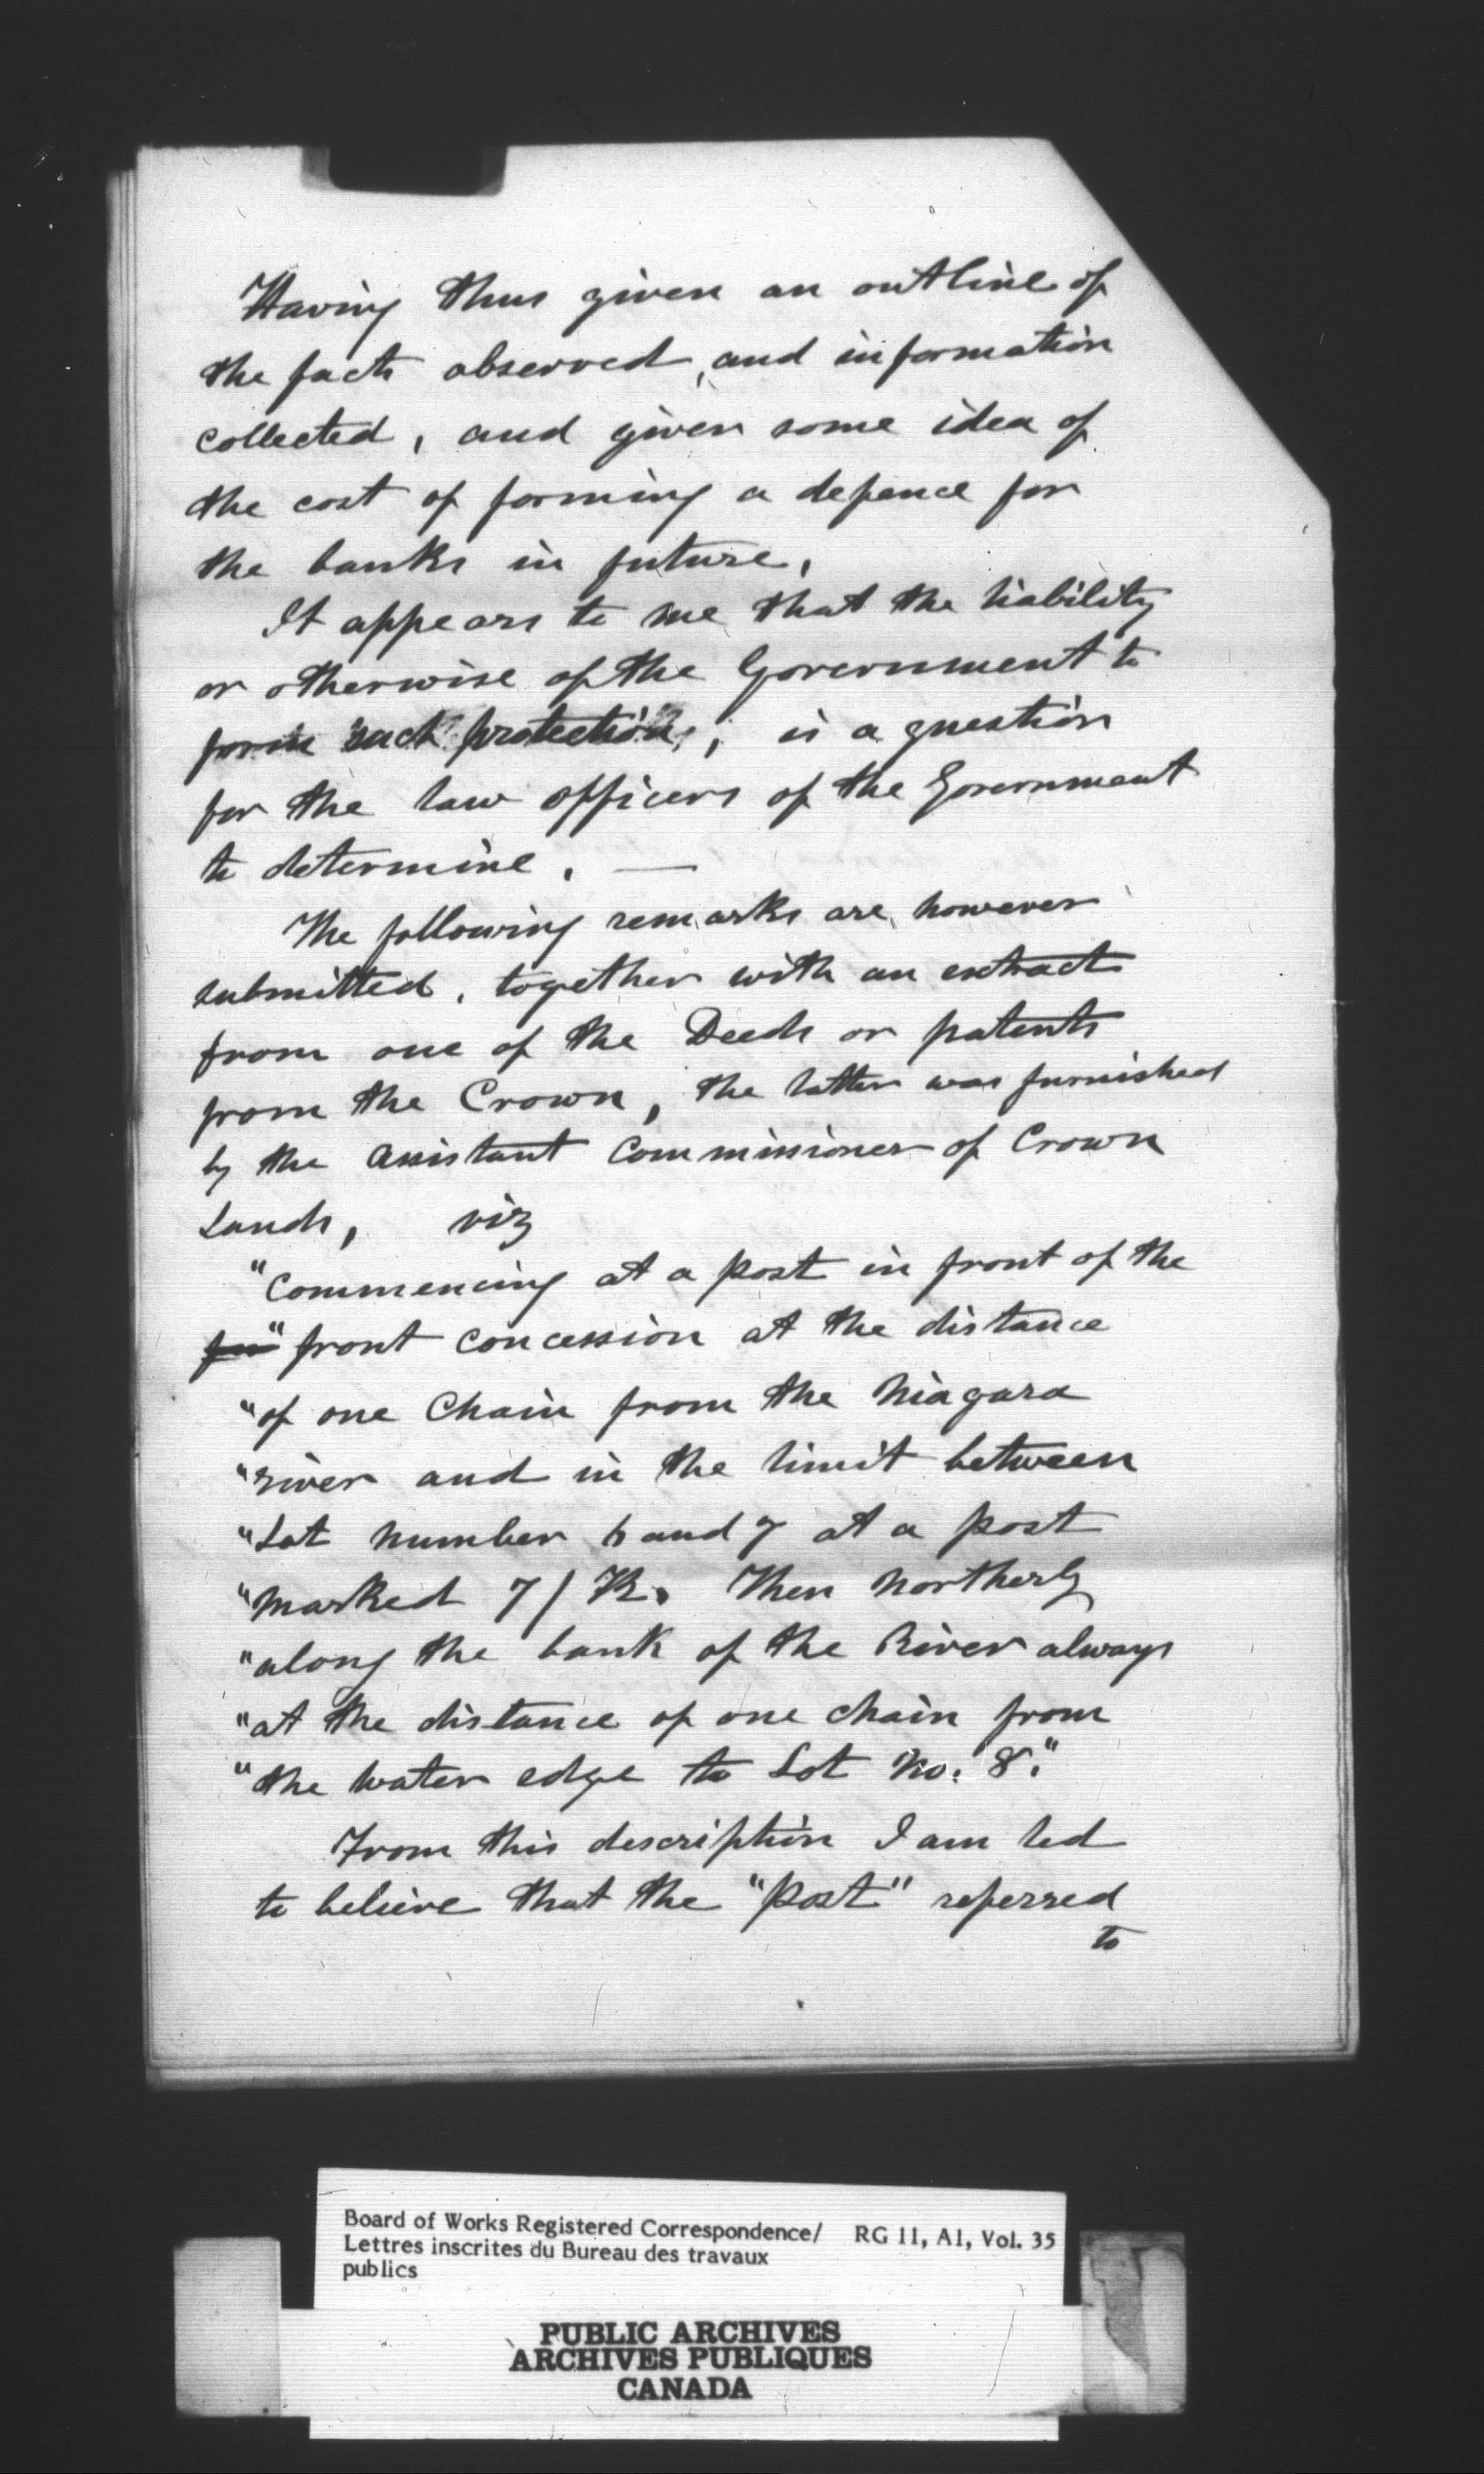 Having thus given an outline of
the facts observed, and information
collected, and given some idea of
the cost of forming a defence for
the banks in future,
It appears to me that the liability
or otherwise of the Government to
form such protection, is a question
for the law officers of the Government
to determine. —
The following remarks are however
submitted, together with an extract
from one of the Deeds or patents
from the Crown, the latter was furnished
by the Assistant Commissioner of Crown
Lands, viz
"Commencing at a post in front of the
" front concession at the distance
"of one Chain from the Niagara
"river and in the limit between
"Lot number 6 and 7 at a post
"marked 7/ Then Northerly
"along the bank of the River always
"at the distance of one chain from
"the water edge to Lot No. 8."
From this description I am led
to believe that the "Post" referred
to
Board of Works Registered Correspondence/ RG 11, A1, Vol. 35
Lettres inscrites du Bureau des travaux
publics
PUBLIC ARCHIVES
ARCHIVES PUBLIQUES
CANADA